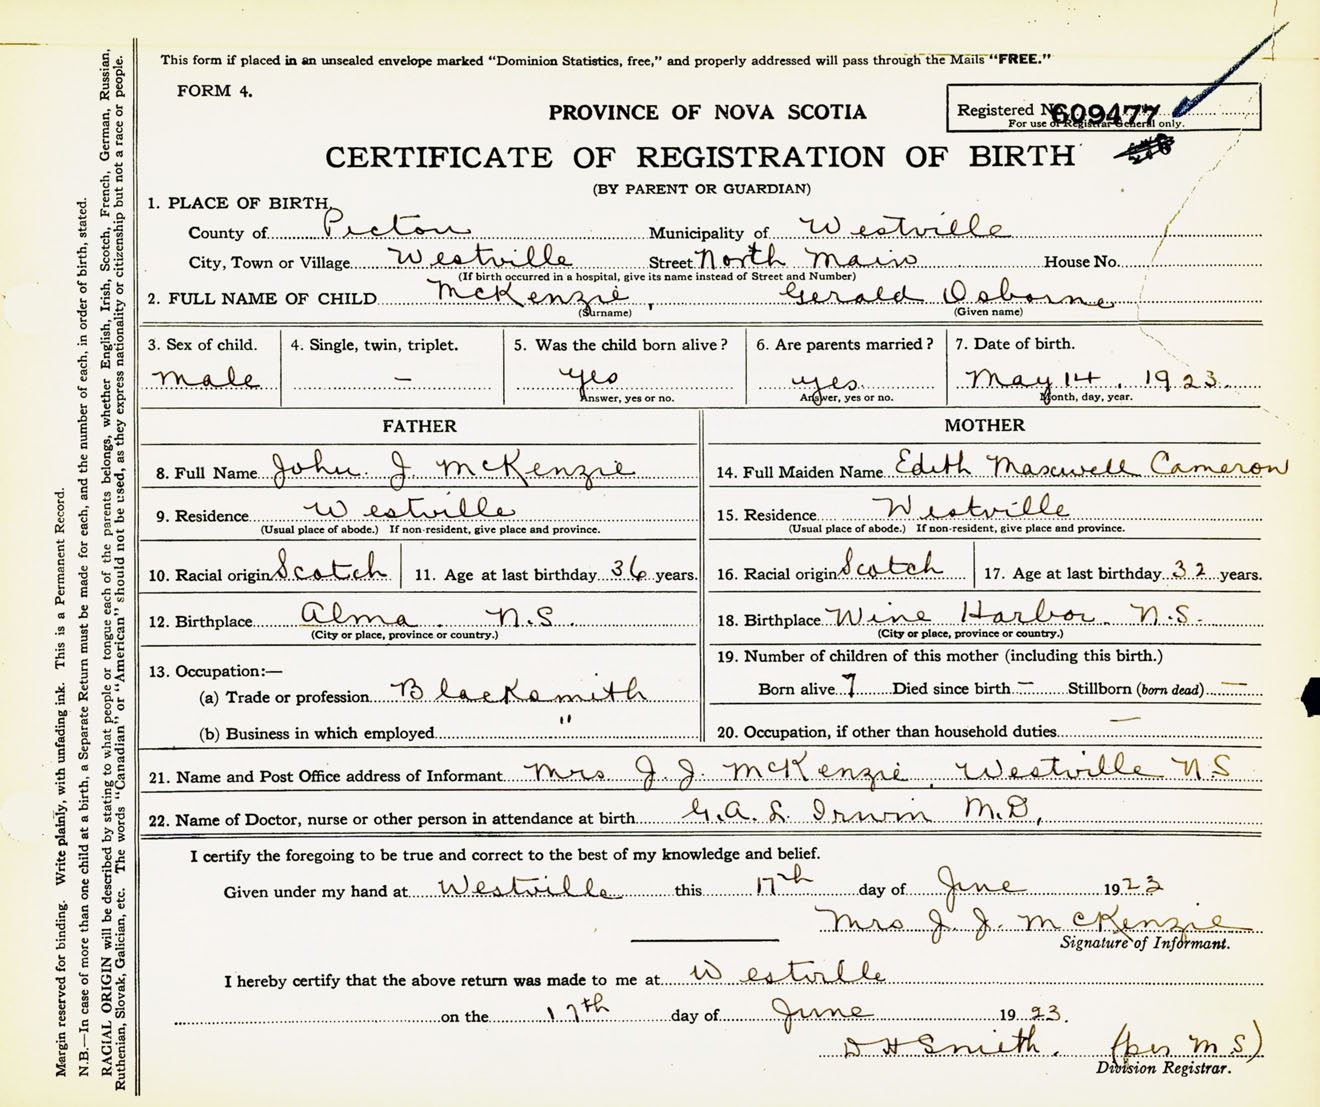 This form if placed in an unsealed envelope marked "Dominion Statistics, free," and properly addressed will pass through the Mails "FREE."
FORM 4.
PROVINCE OF NOVA SCOTIA
Registered No. 609477
For use of Registrar General only.
CERTIFICATE OF REGISTRATION OF BIRTH
(BY PARENT OR GUARDIAN)
1. PLACE OF BIRTH
County of Pictou Municipality of Westville
City, Town or Village Westville Street North Main House No.
(If birth occurred in a hospital, give its name instead of Street and Number)
2. FULL NAME OF CHILD McKenzie, Gerald Osborne
(Surname) (Given name)
3. Sex of child. 4. Single, twin, triplet. 5. Was the child born alive? 6. Are parents married? 7. Date of birth.
male — yes yes. May 14, 1923
Answer, yes or no. Answer, yes or no. Month, day, year.
FATHER MOTHER
8. Full Name John J McKenzie 14. Full Maiden Name Edith Maxwell Cameron
9. Residence Westville 15. Residence Westville
(Usual place of abode.) If non-resident, give place and province. (Usual place of abode.) If non-resident, give place and province.
10. Racial origin Scotch 11. Age at last birthday 36 years. 16. Racial origin Scotch 17. Age at last birthday 32 years.
12. Birthplace Alma. N.S. 18. Birthplace Wine Harbor. N.S.
(City or place, province or country.) (City or place, province or country.)
13. Occupation:— 19. Number of children of this mother (including this birth.)
(a) Trade or profession Blacksmith Born alive 7 Died since birth — Stillborn (born dead) —
(b) Business in which employed " 20. Occupation, if other than household duties —
21. Name and Post Office address of Informant Mrs J. J. McKenzie, Westville N.S
22. Name of Doctor, nurse or other person in attendance at birth G.A.S. Irwin M.D,
I certify the foregoing to be true and correct to the best of my knowledge and belief.
Given under my hand at Westville this 17th day of June 1923
Mrs J. J. McKenzie
Signature of Informant.
I hereby certify that the above return was made to me at Westville
on the 17th day of June 1923.
D H Smith. (per M S)
Division Registrar.
Margin reserved for binding. Write plainly, with unfading ink. This is a Permanent Record.
N.B.—In case of more than one child at a birth, a Separate Return must be made for each, and the number of each, in order of birth, stated.
RACIAL ORIGIN will be described by stating to what people or tongue each of the parents belongs, whether English, Irish, Scotch, French, German, Russian,
Ruthenian, Slovak, Galician, etc. The words "Canadian" or "American" should not be used, as they express nationality or citizenship but not a race or people.